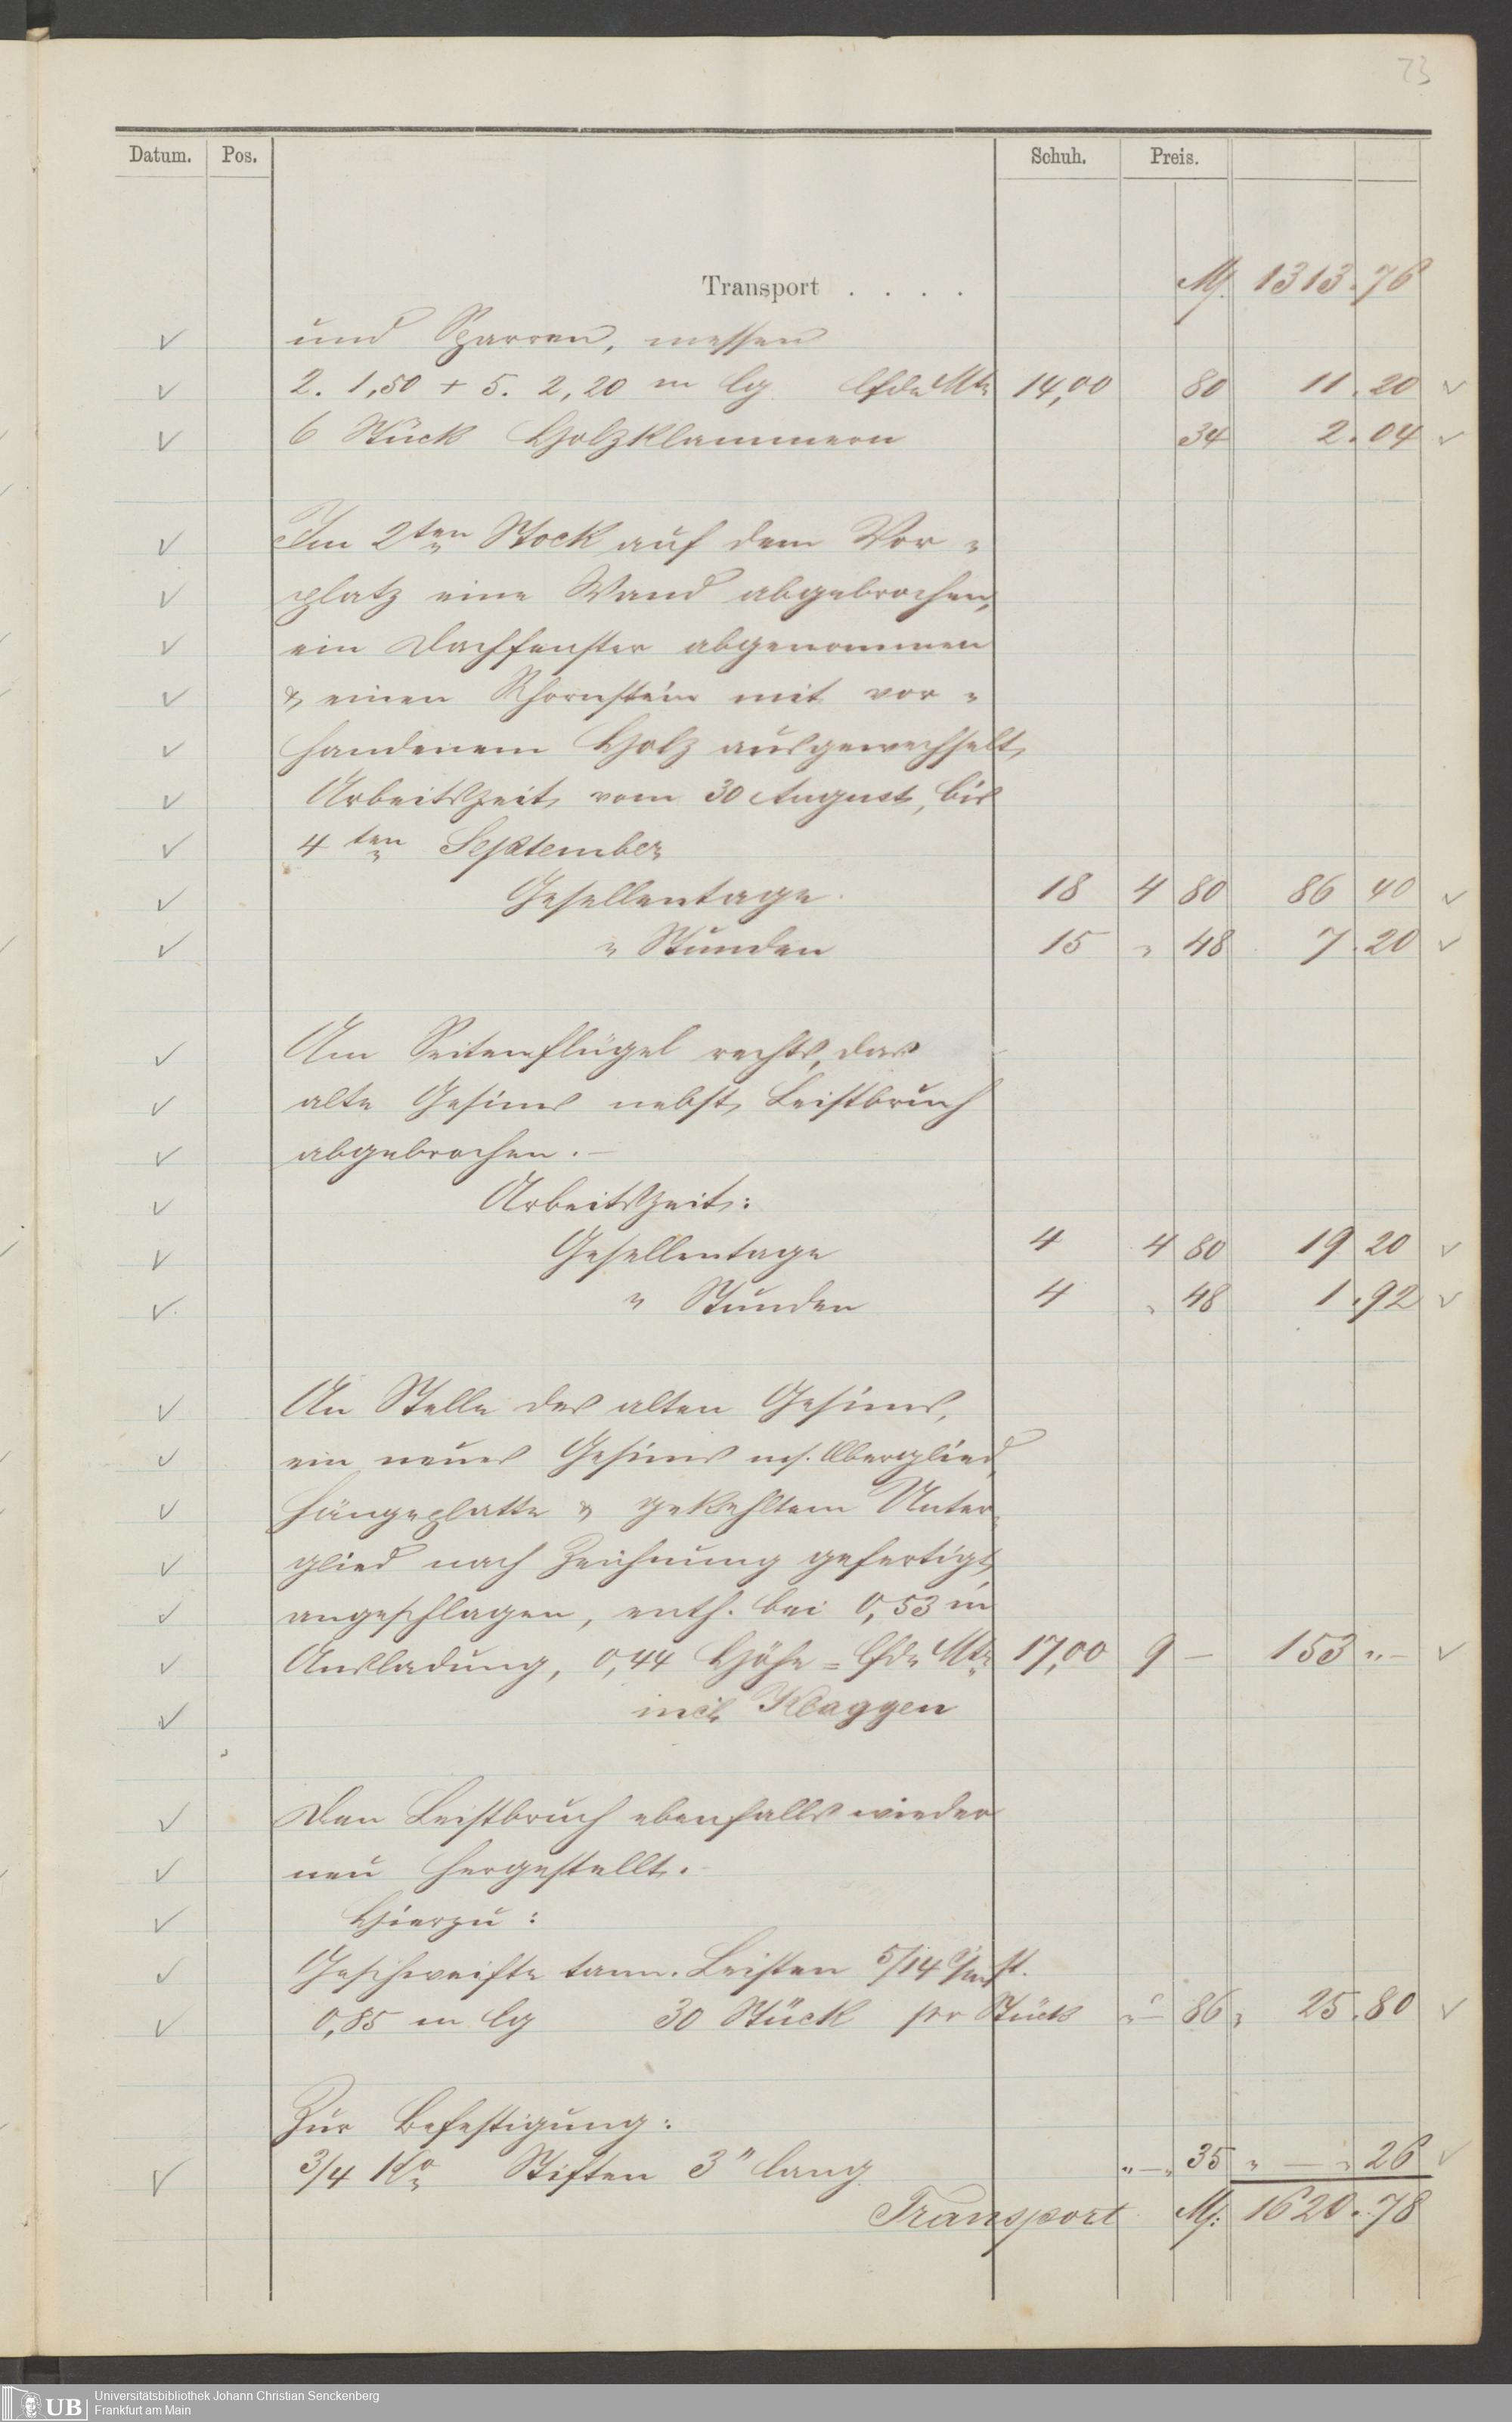 73
Datum. Pos. Schuh. Preis.
Transport . . . . M. 1313.76
und Sparren, messen
2. 1,50 + 5. 2,20 m lg lfde Mtr 14,00 80 11.20
6 Stück Holzklammern 34 2.04
Im 2ten Stock auf dem Vor-
platz eine Wand abgebrochen,
ein Dachfenster abgenommen
& einen Schornstein mit vor-
handenem Holz ausgewechselt,
Arbeitszeit vom 30 August, bis
4ten September
Gesellentage 18 4 80 86 40
" Stunden 15 " 48 7.20
Am Seitenflügel rechts, das
alte Gesims nebst Leistbruch
abgebrochen.—
Arbeitszeit:
Gesellentage 4 4 80 19 20
" Stunden 4 " 48 1.92
An Stelle des alten Gesims,
ein neues Gesims m. Oberglied,
Hängeplatte & gekehltem Unter-
glied nach Zeichnung gefertigt,
angeschlagen, enth. bei 0,53 m
Ausladung, 0,44 Höhe = lfde Mtr 17,00 9 — 153 "—
incl. Klaggen
Den Leistbruch ebenfalls wieder
neu hergestellt.—
Hierzu:
Geschweifte tann. Leisten 5/14 c/m st.
0,85 m lg 30 Stück pr Stück "— 86 " 25.80
Zur Befestigung:
3/4 Ko Stiften 3" lang "—" 35 " — " 26
Transport M: 1620.78
Universitätsbibliothek Johann Christian Senckenberg
Frankfurt am Main
UB